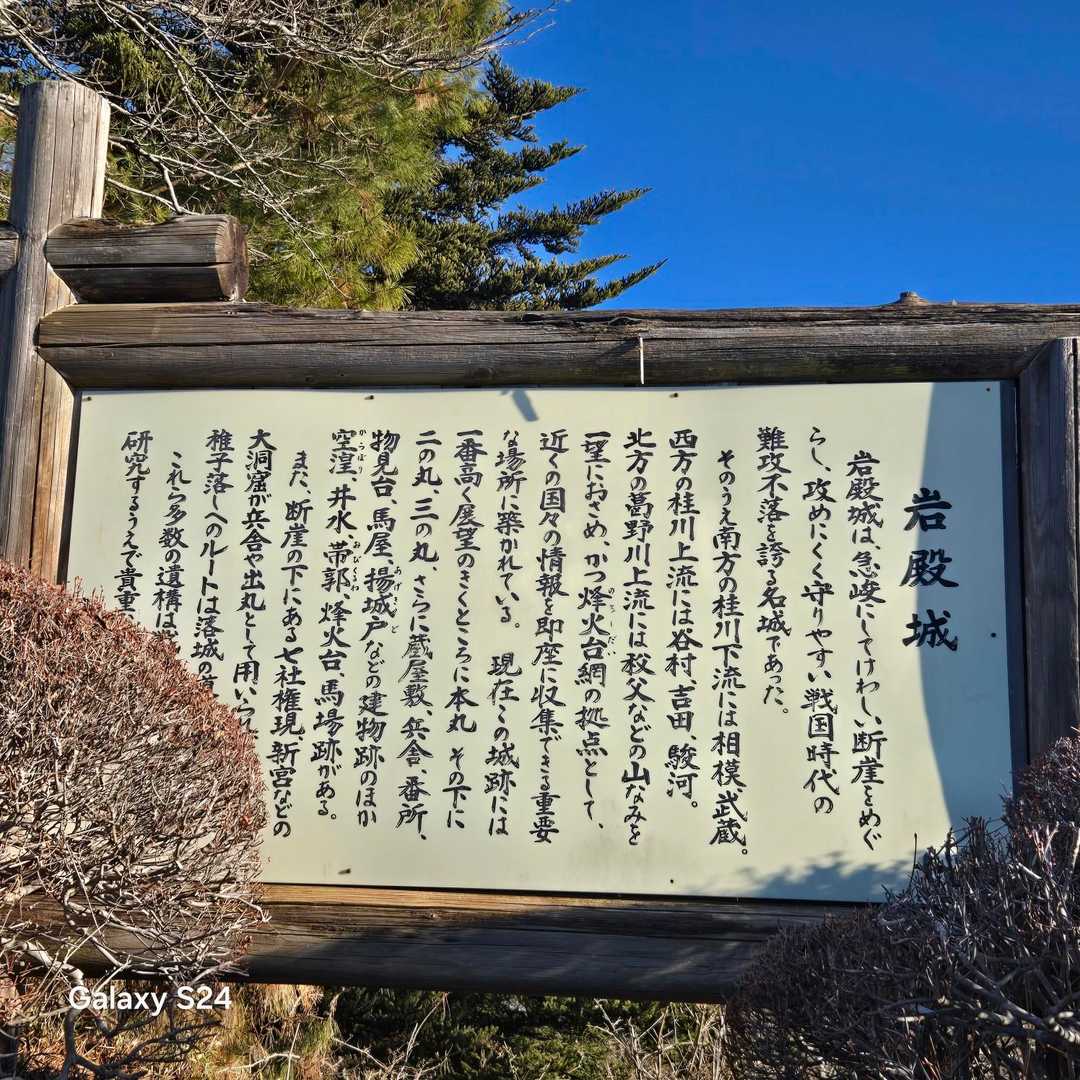 岩殿城
岩殿城は、急峻にしてけわしい断崖をめぐ
らし、攻めにくく守りやすい戦国時代の
難攻不落を誇る名城であった。
そのうえ南方の桂川下流には相模、武蔵。
西方の桂川上流には谷村、吉田、駿河。
北方の葛野川上流には秩父などの山なみを
一望におさめ、かつ烽火台網の拠点として、
のろしだい
近くの国々の情報を即座に収集できる重要
な場所に築かれている。 現在この城跡には
一番高く展望のきくところに本丸 その下に
二の丸、三の丸、さらに蔵屋敷、兵舎、番所、
物見台、馬屋、揚城戸などの建物跡のほか
あげきど
空湟、井水、帯郭、烽火台、馬場跡がある。
からぼり
おびくるわ
また、断崖の下にある七社権現、新宮などの
大洞窟が兵舎や出丸として用いられ
稚子落しへのルートは落城の
これら多数の遺構は
研究するうえで貴重
Galaxy S24